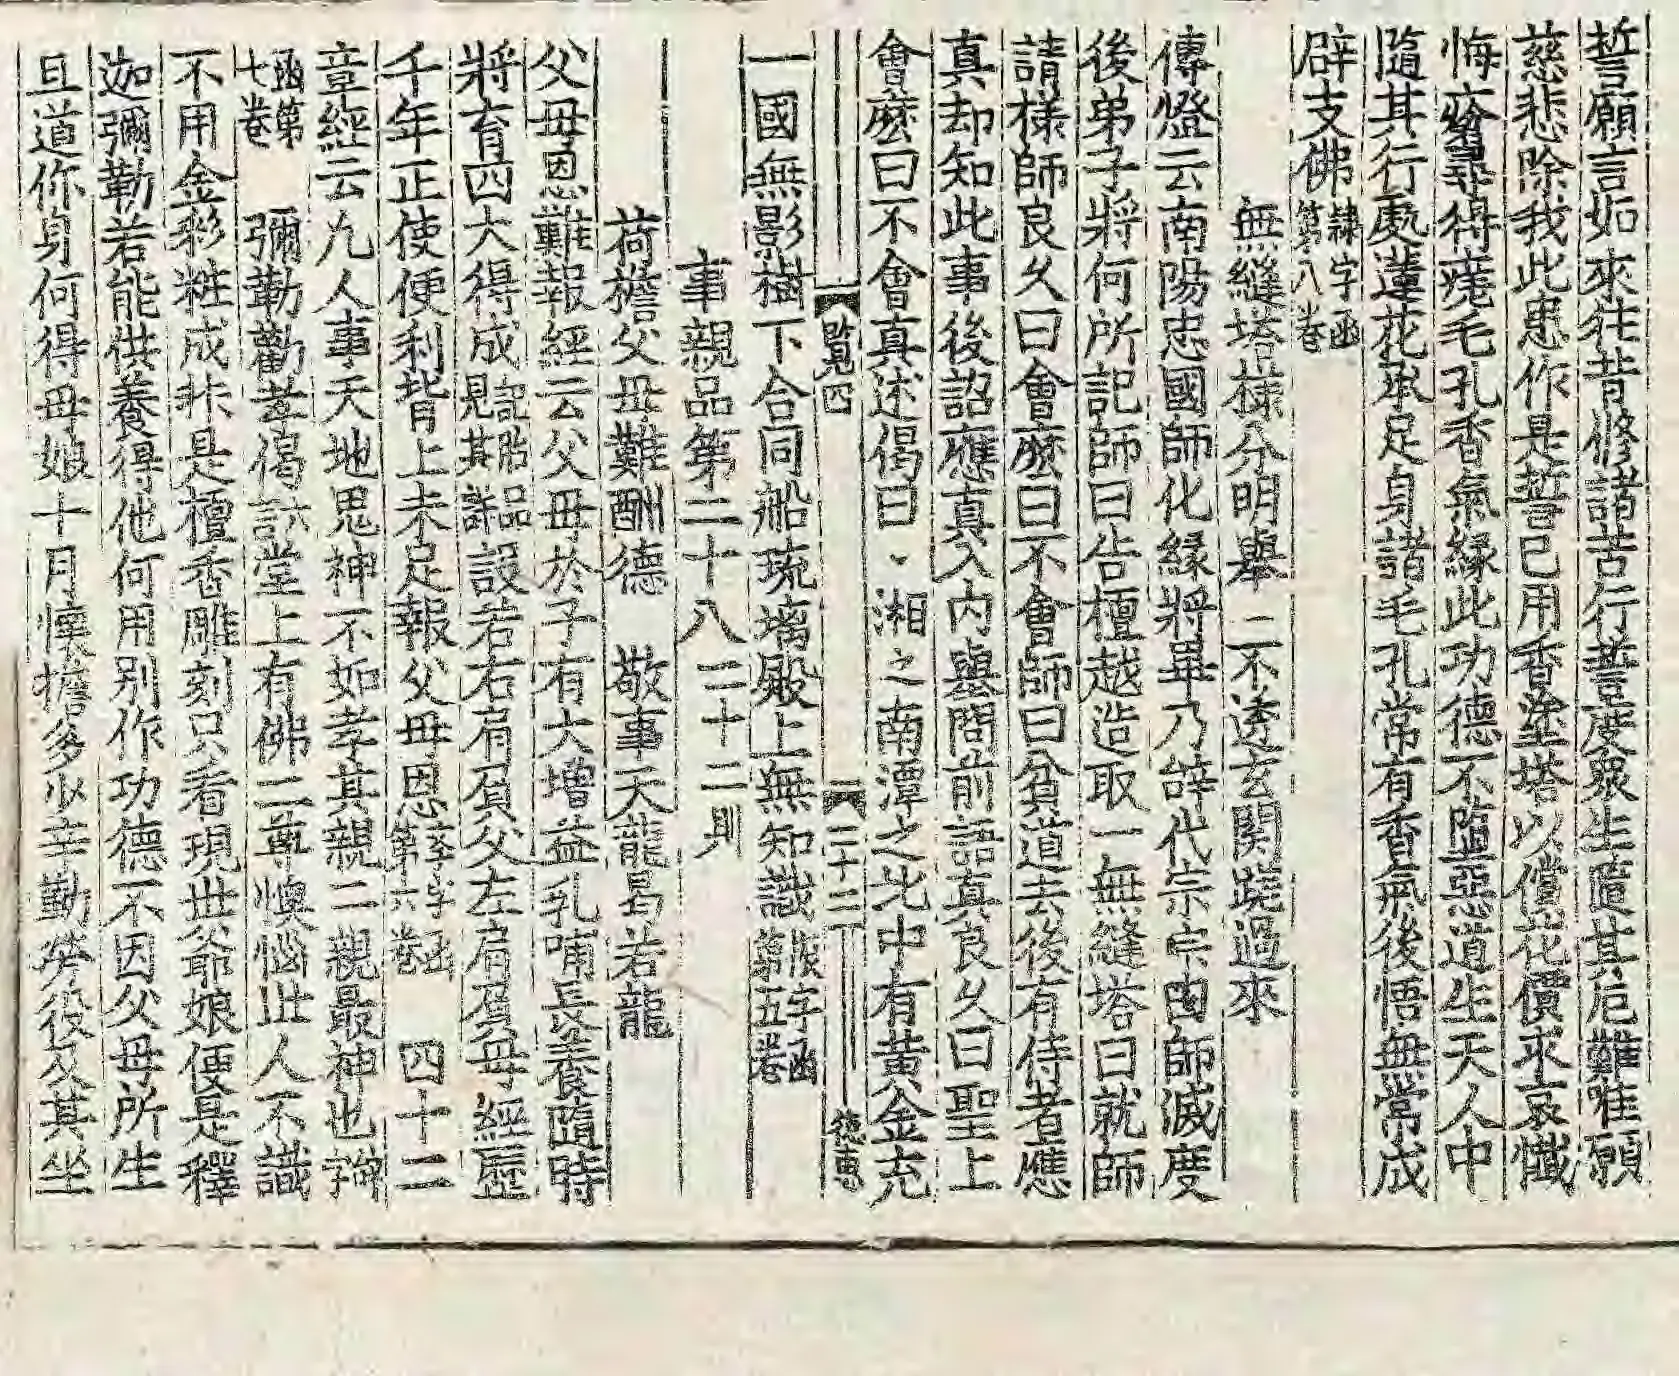 誓願言如來往昔修諸苦行菩度衆生隨其厄難唯願
慈悲除我此患作是誓已用香塗塔以償花價求哀懺
悔瘡尋得痊毛孔香氣緣此功德不墮惡道生天人中
隨其行處蓮花承足身諸毛孔常有香氣後悟無常成
辟支佛隷字函第八卷
無縫塔樣分明舉 二不透玄関蹺過來
傳燈云南陽忠國師化緣將畢乃辤代宗宗由師滅度
後弟子將何所記師曰告檀越造取一無縫塔曰就師
請樣師良久曰會麽曰不會師曰貧道去後有侍者應
真却知此事後詔應真入內舉問前語真良久曰聖上
會麽曰不會真述偈曰、湘之南潭之北中有黃金充
覧四 三十二
一國無影樹下合同船琉璃殿上無知識 字函第五卷
事親品第二十八 三十二則
荷檐父母難酬德 敬事天龍曷若龍
父母恩難報經云父母於子有大增益乳哺長養隨時
將育四大得成 記胎品見其詳 設若右肩負父左肩負母經歷
千年正使便利背上未足報父母恩 孝字函第六卷 四十二
章經云凢人事天地鬼神不如孝其親二親最神也 辤
函第七卷 彌勒勸孝偈 六 堂上有佛二尊懊惱世人不識
不用金彩粧成非是檀香雕刻只看現世爺娘便是釋
迦彌勒若能供養得他何用別作功德不因父母所生
且道你身何得母娘十月懷擔多少辛勤勞役父其坐